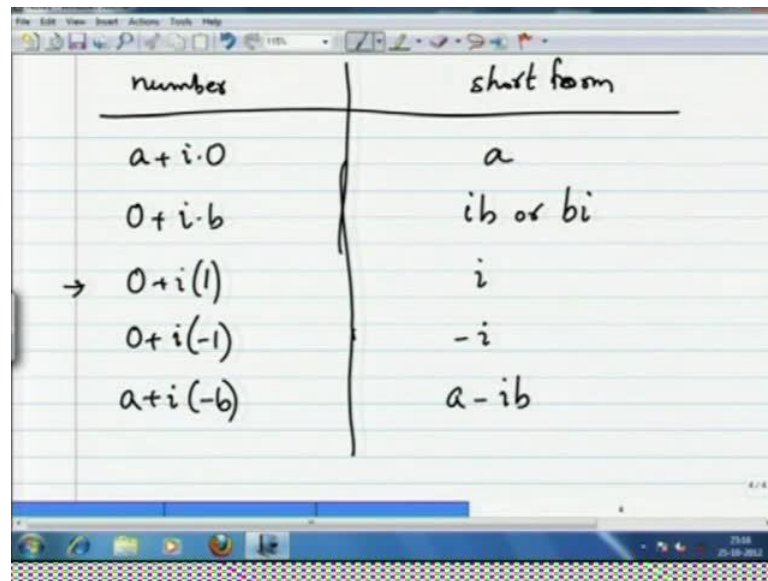 File Edit View Insert Actions Tools Help
115%
number short form
a + i·0 a
0 + i·b ib or bi
→ 0 + i(1) i
0 + i(-1) -i
a + i(-b) a - ib
4/4
23:16
25-10-2012